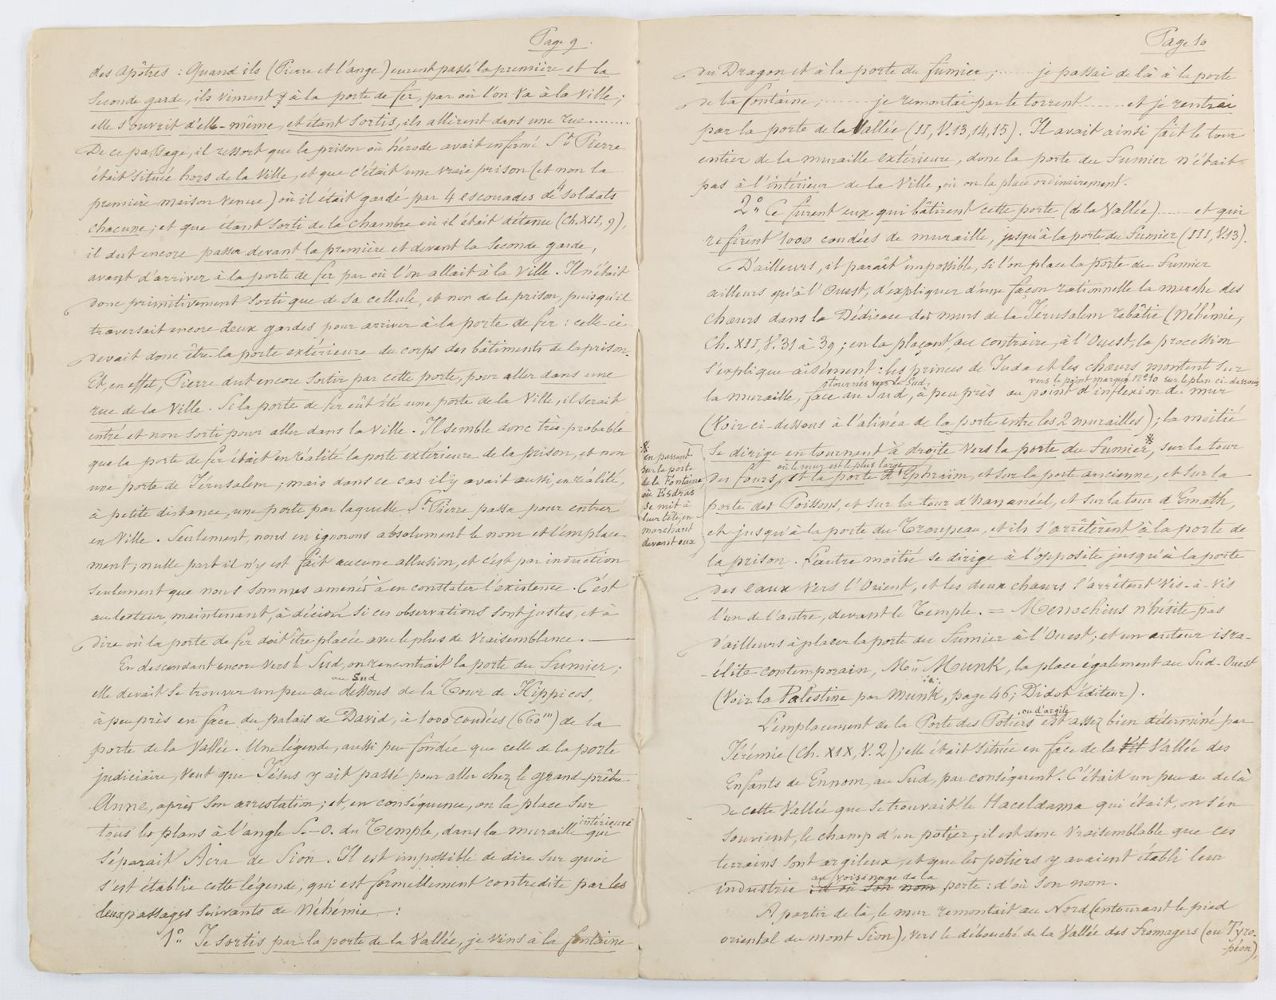 Page 9.
des apôtres : Quand ils (Pierre et l'ange) eurent passé la première et la
seconde garde, ils vinrent à la porte de fer, par où l'on va à la ville ;
elle s'ouvrit d'elle-même, et étant sortis, ils allèrent dans une rue........
De ce passage, il ressort que la prison où hérode avait enfermé St Pierre
était située hors de la Ville, et que c'était une vraie prison (et non la
première maison venue) où il était gardé par 4 escouades de 4 soldats
chacune ; et que étant sorti de la chambre où il était détenu (Ch. XII, 9),
il dut encore passer devant la première et devant la seconde garde,
avant d'arriver à la porte de fer par où l'on allait à la ville. Il n'était
donc primitivement sorti que de sa cellule, et non de la prison, puisqu'il
traversait encore deux gardes pour arriver à la porte de fer : celle-ci
devait donc être la porte extérieure du corps des bâtiments de la prison.
Et, en effet, Pierre dut encore sortir par cette porte, pour aller dans une
rue de la Ville. Si la porte de fer eût été une porte de la Ville, il serait
entré et non sorti pour aller dans la ville. Il semble donc très-probable
que la porte de fer était en réalité la porte extérieure de la prison, et non
une porte de Jérusalem ; mais dans ce cas il y avait aussi, en réalité,
à petite distance, une porte par laquelle St Pierre passa pour entrer
en Ville. Seulement, nous en ignorons absolument le nom et l'emplace-
ment ; nulle part il n'y est fait aucune allusion, et c'est par induction
seulement que nous sommes amenés à en constater l'existence. C'est
au lecteur, maintenant, à décider si ces observations sont justes, et à
dire où la porte de fer doit être placée avec le plus de vraisemblance.
En descendant encore vers le Sud, on rencontrait la porte du Fumier ;
elle devait se trouver un peu au dessous au Sud de la Tour de Hippicos,
à peu près en face du palais de David, à 1000 coudées (660m) de la
porte de la Vallée. Une légende, aussi peu fondée que celle de la porte
judiciaire, veut que Jésus y ait passé pour aller chez le grand-prêtre
Anne, après son arrestation ; et, en conséquence, on la place sur
tous les plans à l'angle S.-O. du Temple, dans la muraille intérieure qui
séparait Acra de Sion. Il est impossible de dire sur quoi
s'est établie cette légende, qui est formellement contredite par les
deux passages suivants de Néhémie :
1° Je sortis par la porte de la Vallée, je vins à la fontaine
Page 10
du Dragon et à la porte du fumier ;...... je passai de là à la porte
de la fontaine ;........ je remontai par le torrent....... et je rentrai
par la porte de la Vallée (II, V. 13, 14, 15). Il avait ainsi fait le tour
entier de la muraille extérieure, donc la porte du Fumier n'était
pas à l'intérieur de la Ville, où on la place ordinairement.
2° Ce furent eux qui bâtirent cette porte (de la Vallée)...... et qui
refirent 1000 coudées de muraille, jusqu'à la porte du Fumier (III, V. 13).
D'ailleurs, il paraît impossible, si l'on place la porte du Fumier
ailleurs qu'à l'Ouest, d'expliquer d'une façon rationnelle la marche des
chœurs dans la Dédicace des murs de la Jérusalem rebâtie (Néhémie,
Ch. XII, V. 31 à 39 ; en la plaçant, au contraire, à l'Ouest, la procession
s'explique aisément : les princes de Juda et les chœurs montent sur
tournés vers le Sud, vers le point marqué N° 10 sur le plan ci-dessous
la muraille, face au Sud, à peu près au point d'inflexion du mur
(Voir ci-dessous à l'alinéa de la porte entre les 2 murailles) ; la moitié
se dirige en tournant à droite vers la porte du Fumier,* sur la tour
où le mur est le plus large
des fours, et la porte d'Ephraïm, et sur la porte ancienne, et sur la
porte des Poissons, et sur la tour d'Hananéel, et sur la tour d'Emath,
et jusqu'à la porte du Troupeau, et ils s'arrêtèrent à la porte de
la prison. L'autre moitié se dirige à l'opposite jusqu'à la porte
des eaux vers l'Orient, et les deux chœurs s'arrêtent vis-à-vis
l'un de l'autre, devant le Temple. = Menochius n'hésite pas
d'ailleurs à placer la porte du Fumier à l'Ouest ; et un auteur isra-
-élite contemporain, Mr Munk, la place également au Sud-Ouest
(Voir la Palestine par Munk, page 46 ; Didot éditeur).
L'emplacement de la Porte des Potiers ou d'argile est assez bien déterminé par
Jérémie (Ch. XIX, V. 2) ; elle était située en face de la Vallée des
Enfants de Ennom, au Sud, par conséquent. C'était un peu au delà
de cette Vallée que se trouvait le Haceldama qui était, on s'en
souvient, le champ d'un potier ; il est donc vraisemblable que ces
terrains sont argileux, et que les potiers y avaient établi leur
industrie : d'où son nom au voisinage de la porte : d'où son nom.
A partir de là, le mur remontait au Nord (entourant le pied
oriental du mont Sion), vers le débouché de la Vallée des Fromagers (ou Tyro-
-péon),
* en passant
sur la porte
de la Fontaine
où Esdras
se mit à
leur tête, en
marchant
devant eux